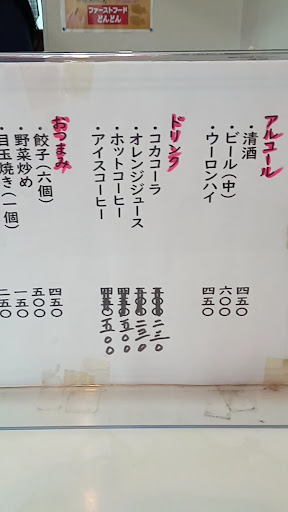 ファーストフード
どんどん
アルコール
・清酒 四五〇
・ビール(中) 六〇〇
・ウーロンハイ 四五〇
ドリンク
・コカコーラ 二三〇
・オレンジジュース 二三〇
・ホットコーヒー 五〇〇
・アイスコーヒー 五〇〇
おつまみ
・餃子(六個) 四五〇
・野菜炒め 五〇〇
・目玉焼き(一個) 一五〇
二五〇